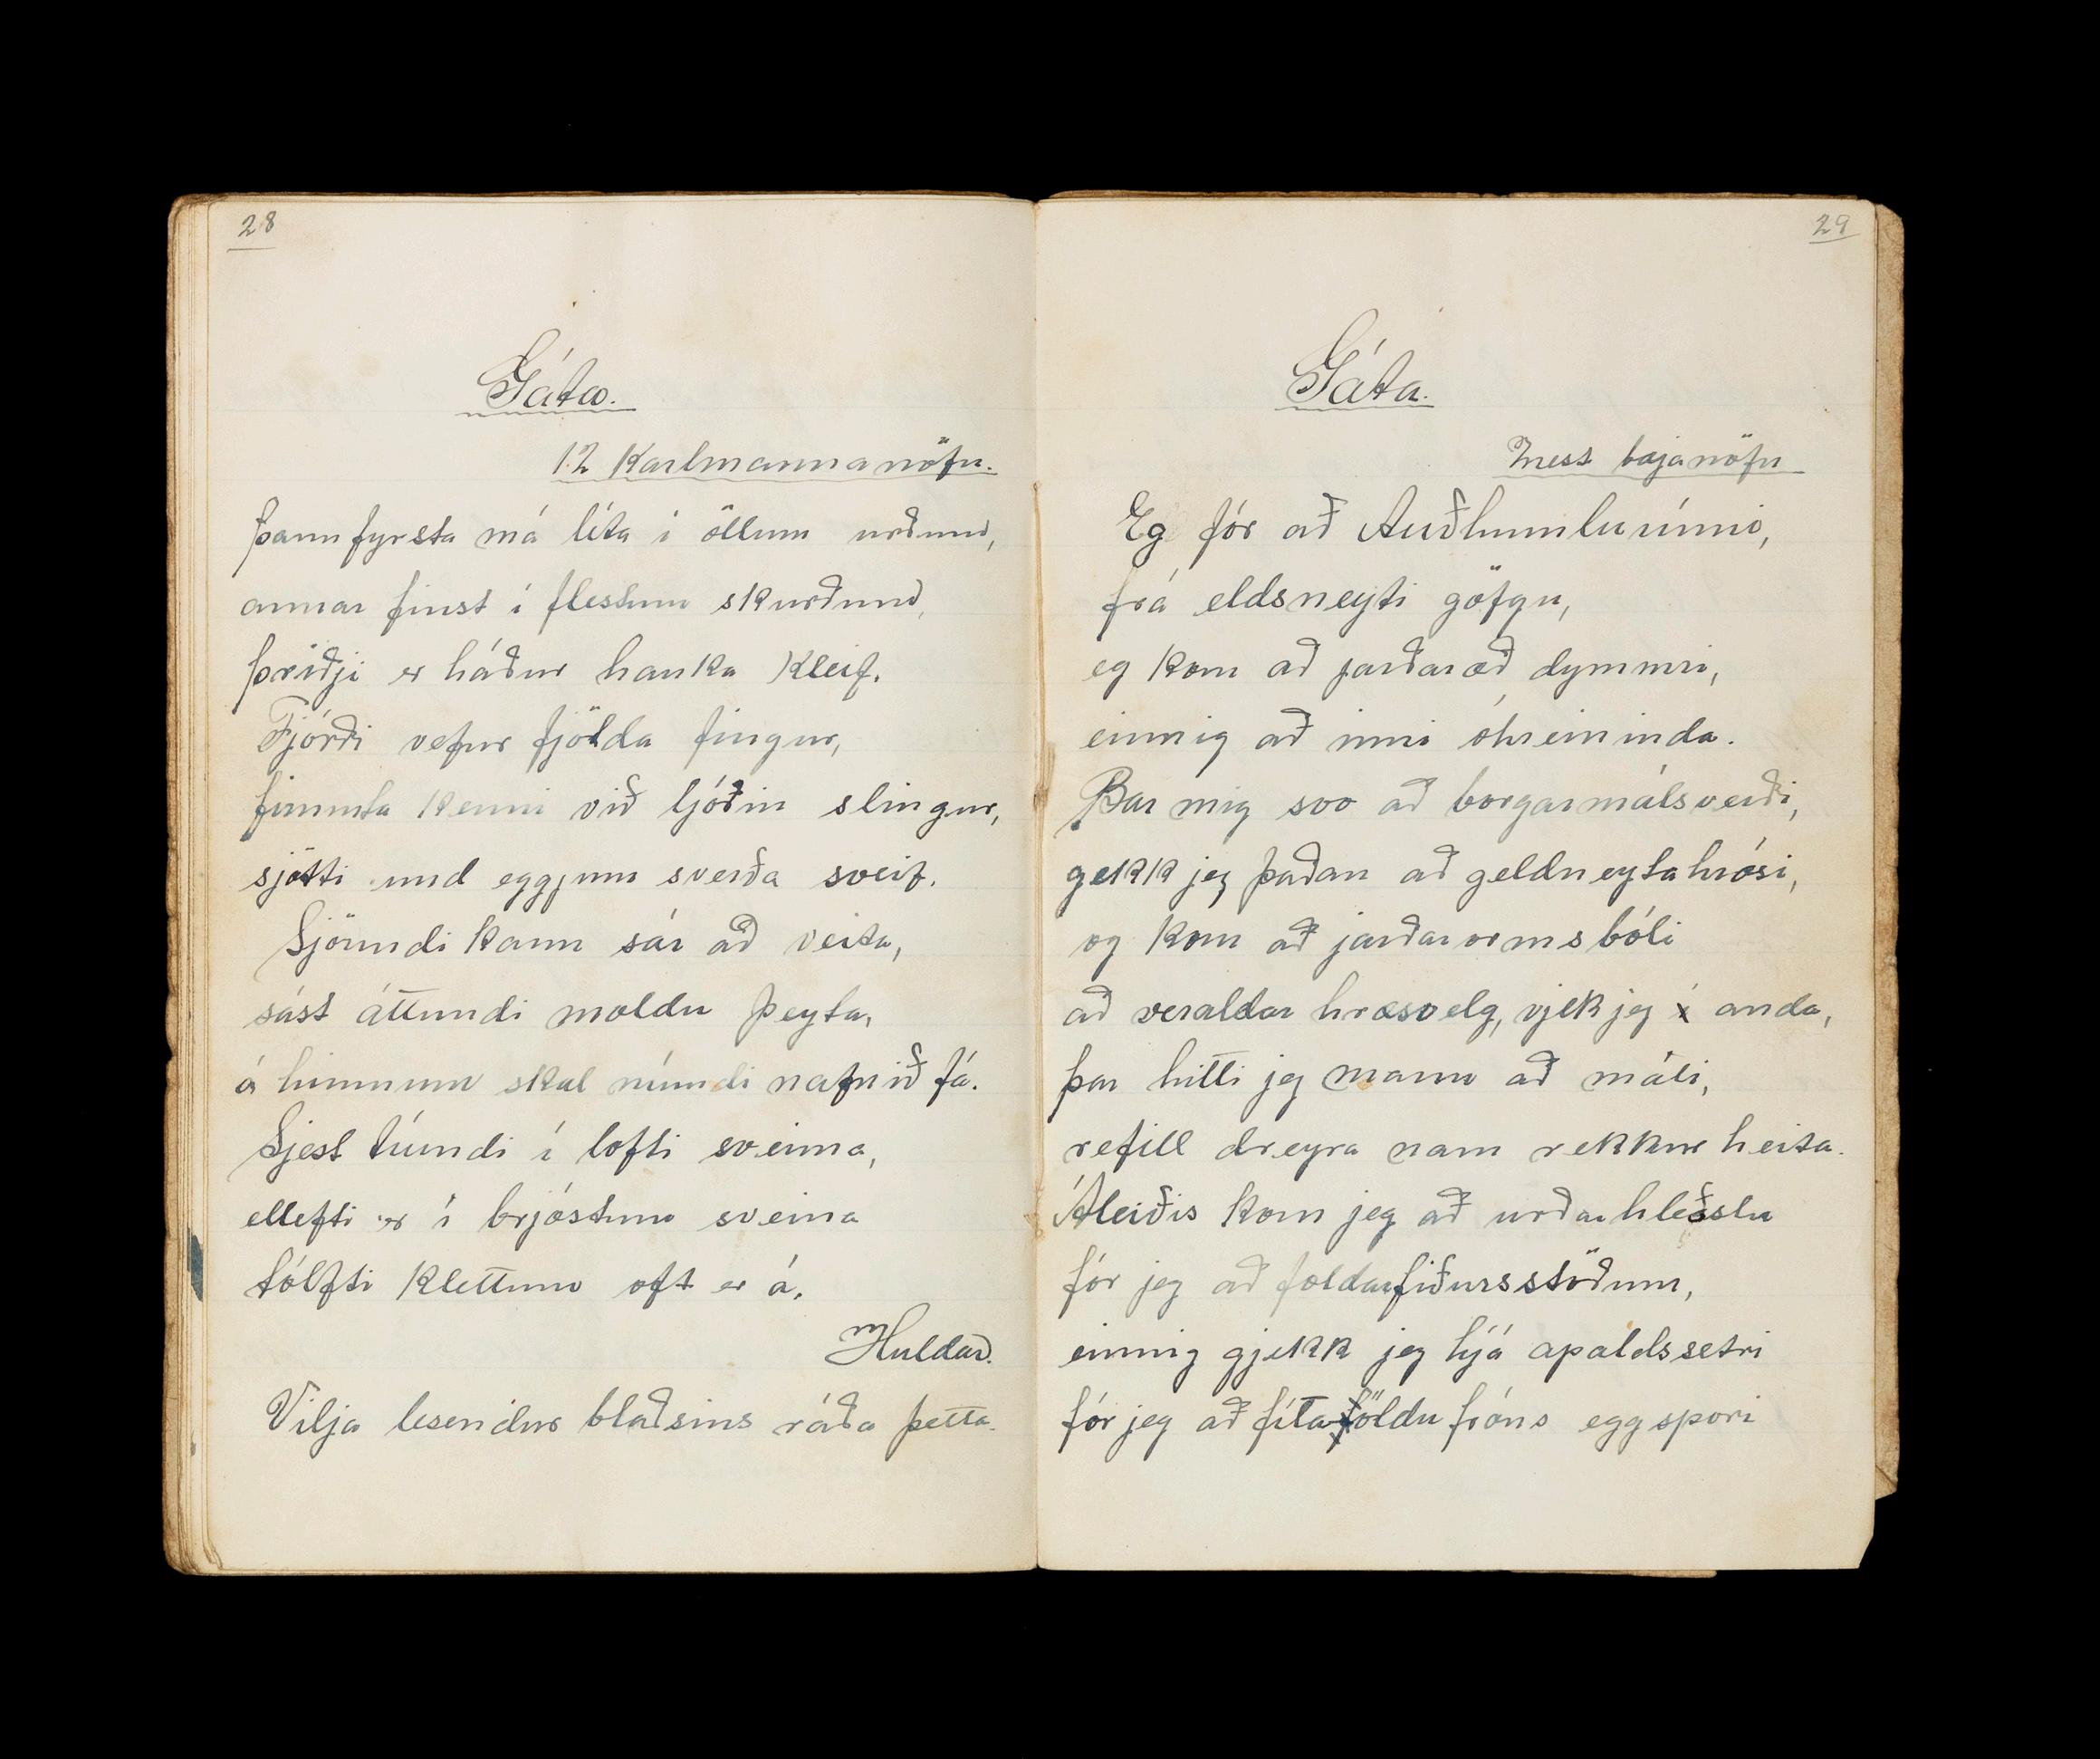 28
Gáta.
12 Karlmannanöfn.
Þann fyrsta má líta í öllum urðum,
annar finst í flestum skurðum,
þriðji er háður hauka kleif.
Fjórði vefur fjölda fingur,
fimmta kenni við ljóðin slingur,
sjötti und eggjum sverða sveif.
Sjöundi kann sár að veita,
sást áttundi moldu þeyta,
á himnum skal níundi nafnið fá.
Sjest tíundi í lofti sveima,
ellefti er í brjóstum sveina
tólfti klettum oft er á.
Huldar.
Vilja lesendur blaðsins ráða þetta.
29
Gáta.
bæjanöfn
Eg fór að Auðhumlurúnni,
frá eldsneyti göfgu,
eg kom að jarðaræð dymmri,
einnig að inni óhreininda.
Bar mig svo að borgarmálsverði,
gekk jeg þaðan að geldneytahrósi,
og kom að jarðarormsbóli
að veraldar hræsvelg, vjek jeg í anda,
þar hitti jeg mann að máli,
refill dreyra nam rekkur heita.
Áleiðis kom jeg að urðarhleðslu
fór jeg að foldarfiðursstöðum,
einnig gjekk jeg hjá apaldssetri
fór jeg að fitaföldu fróns egg spori